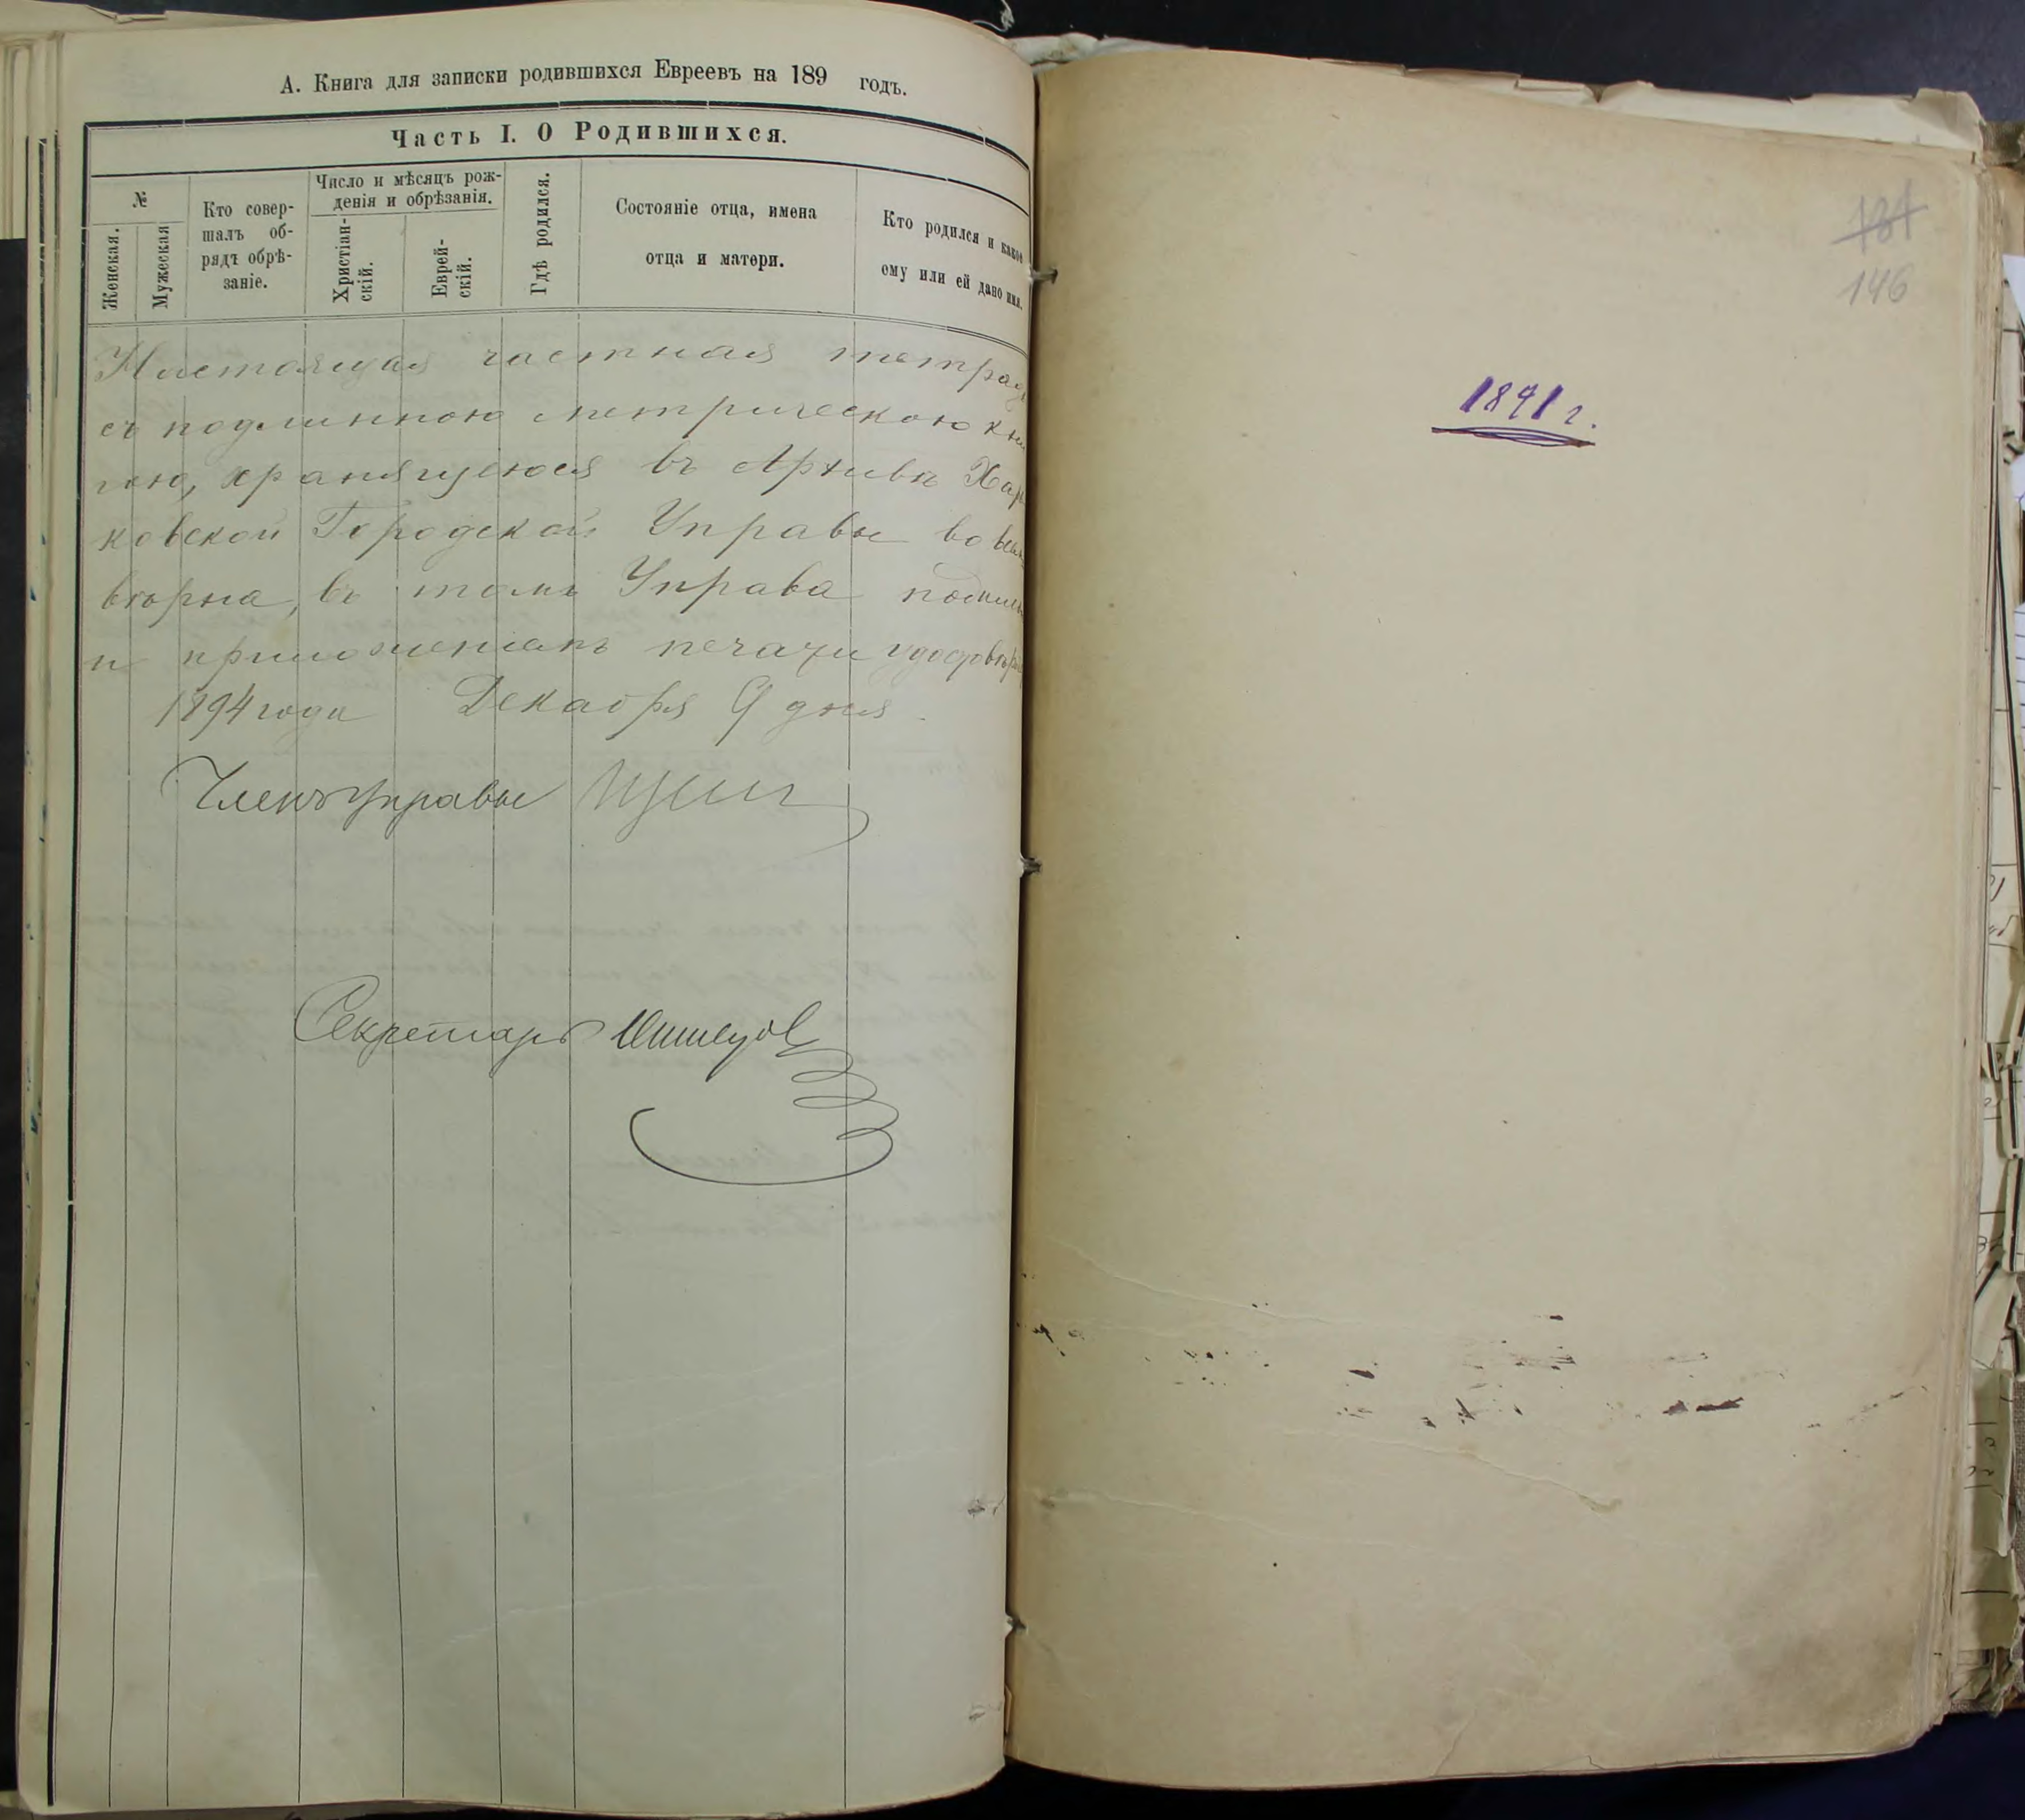 А. Книга для записки родившихся Евреевъ на 189 годъ.
Часть I. О Родившихся.
№
Женская.
Мужеская
Кто совер-
шалъ об-
рядъ обрѣ-
заніе.
Число и мѣсяцъ рож-
денія и обрѣзанія.
Христіан-
скій.
Еврей-
скій.
Гдѣ родился.
Состояніе отца, имена
отца и матери.
Кто родился и какое
ему или ей дано имя.
Настоящая частная тетрад
съ подлинною метрическою кни
гою, хранящеюся въ Архивѣ Харь
ковской Городской Управы во всемъ
вѣрна, въ томъ Управа подписью
и приложеніемъ печати удостовѣр
1894 года Декабря 9 дня
Членъ Управы
Секретарь
181
146
1891 г.